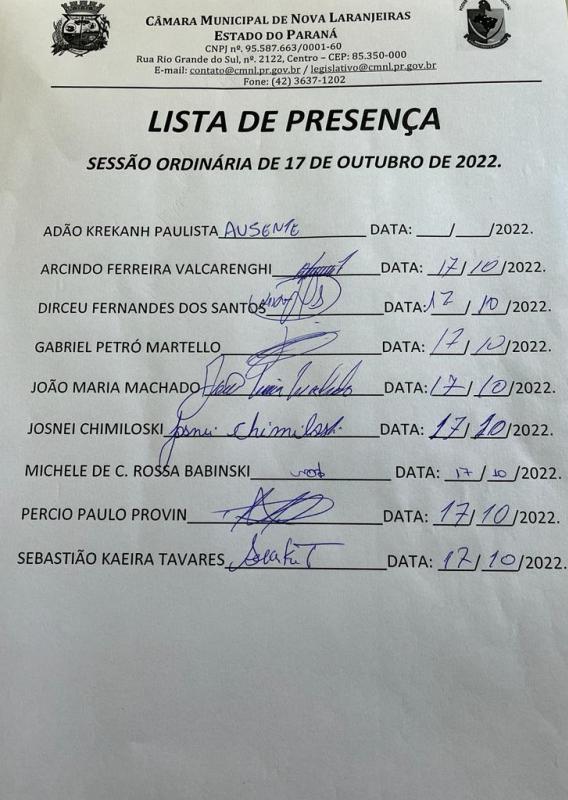 CÂMARA MUNICIPAL DE NOVA LARANJEIRAS
ESTADO DO PARANÁ
CNPJ nº. 95.587.663/0001-60
Rua Rio Grande do Sul, nº. 2122, Centro – CEP: 85.350-000
E-mail: contato@cmnl.pr.gov.br / legislativo@cmnl.pr.gov.br
Fone: (42) 3637-1202
LISTA DE PRESENÇA
SESSÃO ORDINÁRIA DE 17 DE OUTUBRO DE 2022.
ADÃO KREKANH PAULISTA AUSENTE DATA: ___/___/2022.
ARCINDO FERREIRA VALCARENGHI DATA: 17/10/2022.
DIRCEU FERNANDES DOS SANTOS DATA: 17/10/2022.
GABRIEL PETRÓ MARTELLO DATA: 17/10/2022.
JOÃO MARIA MACHADO DATA: 17/10/2022.
JOSNEI CHIMILOSKI Josnei Chimiloski DATA: 17/10/2022.
MICHELE DE C. ROSSA BABINSKI DATA: 17/10/2022.
PERCIO PAULO PROVIN DATA: 17/10/2022.
SEBASTIÃO KAEIRA TAVARES DATA: 17/10/2022.